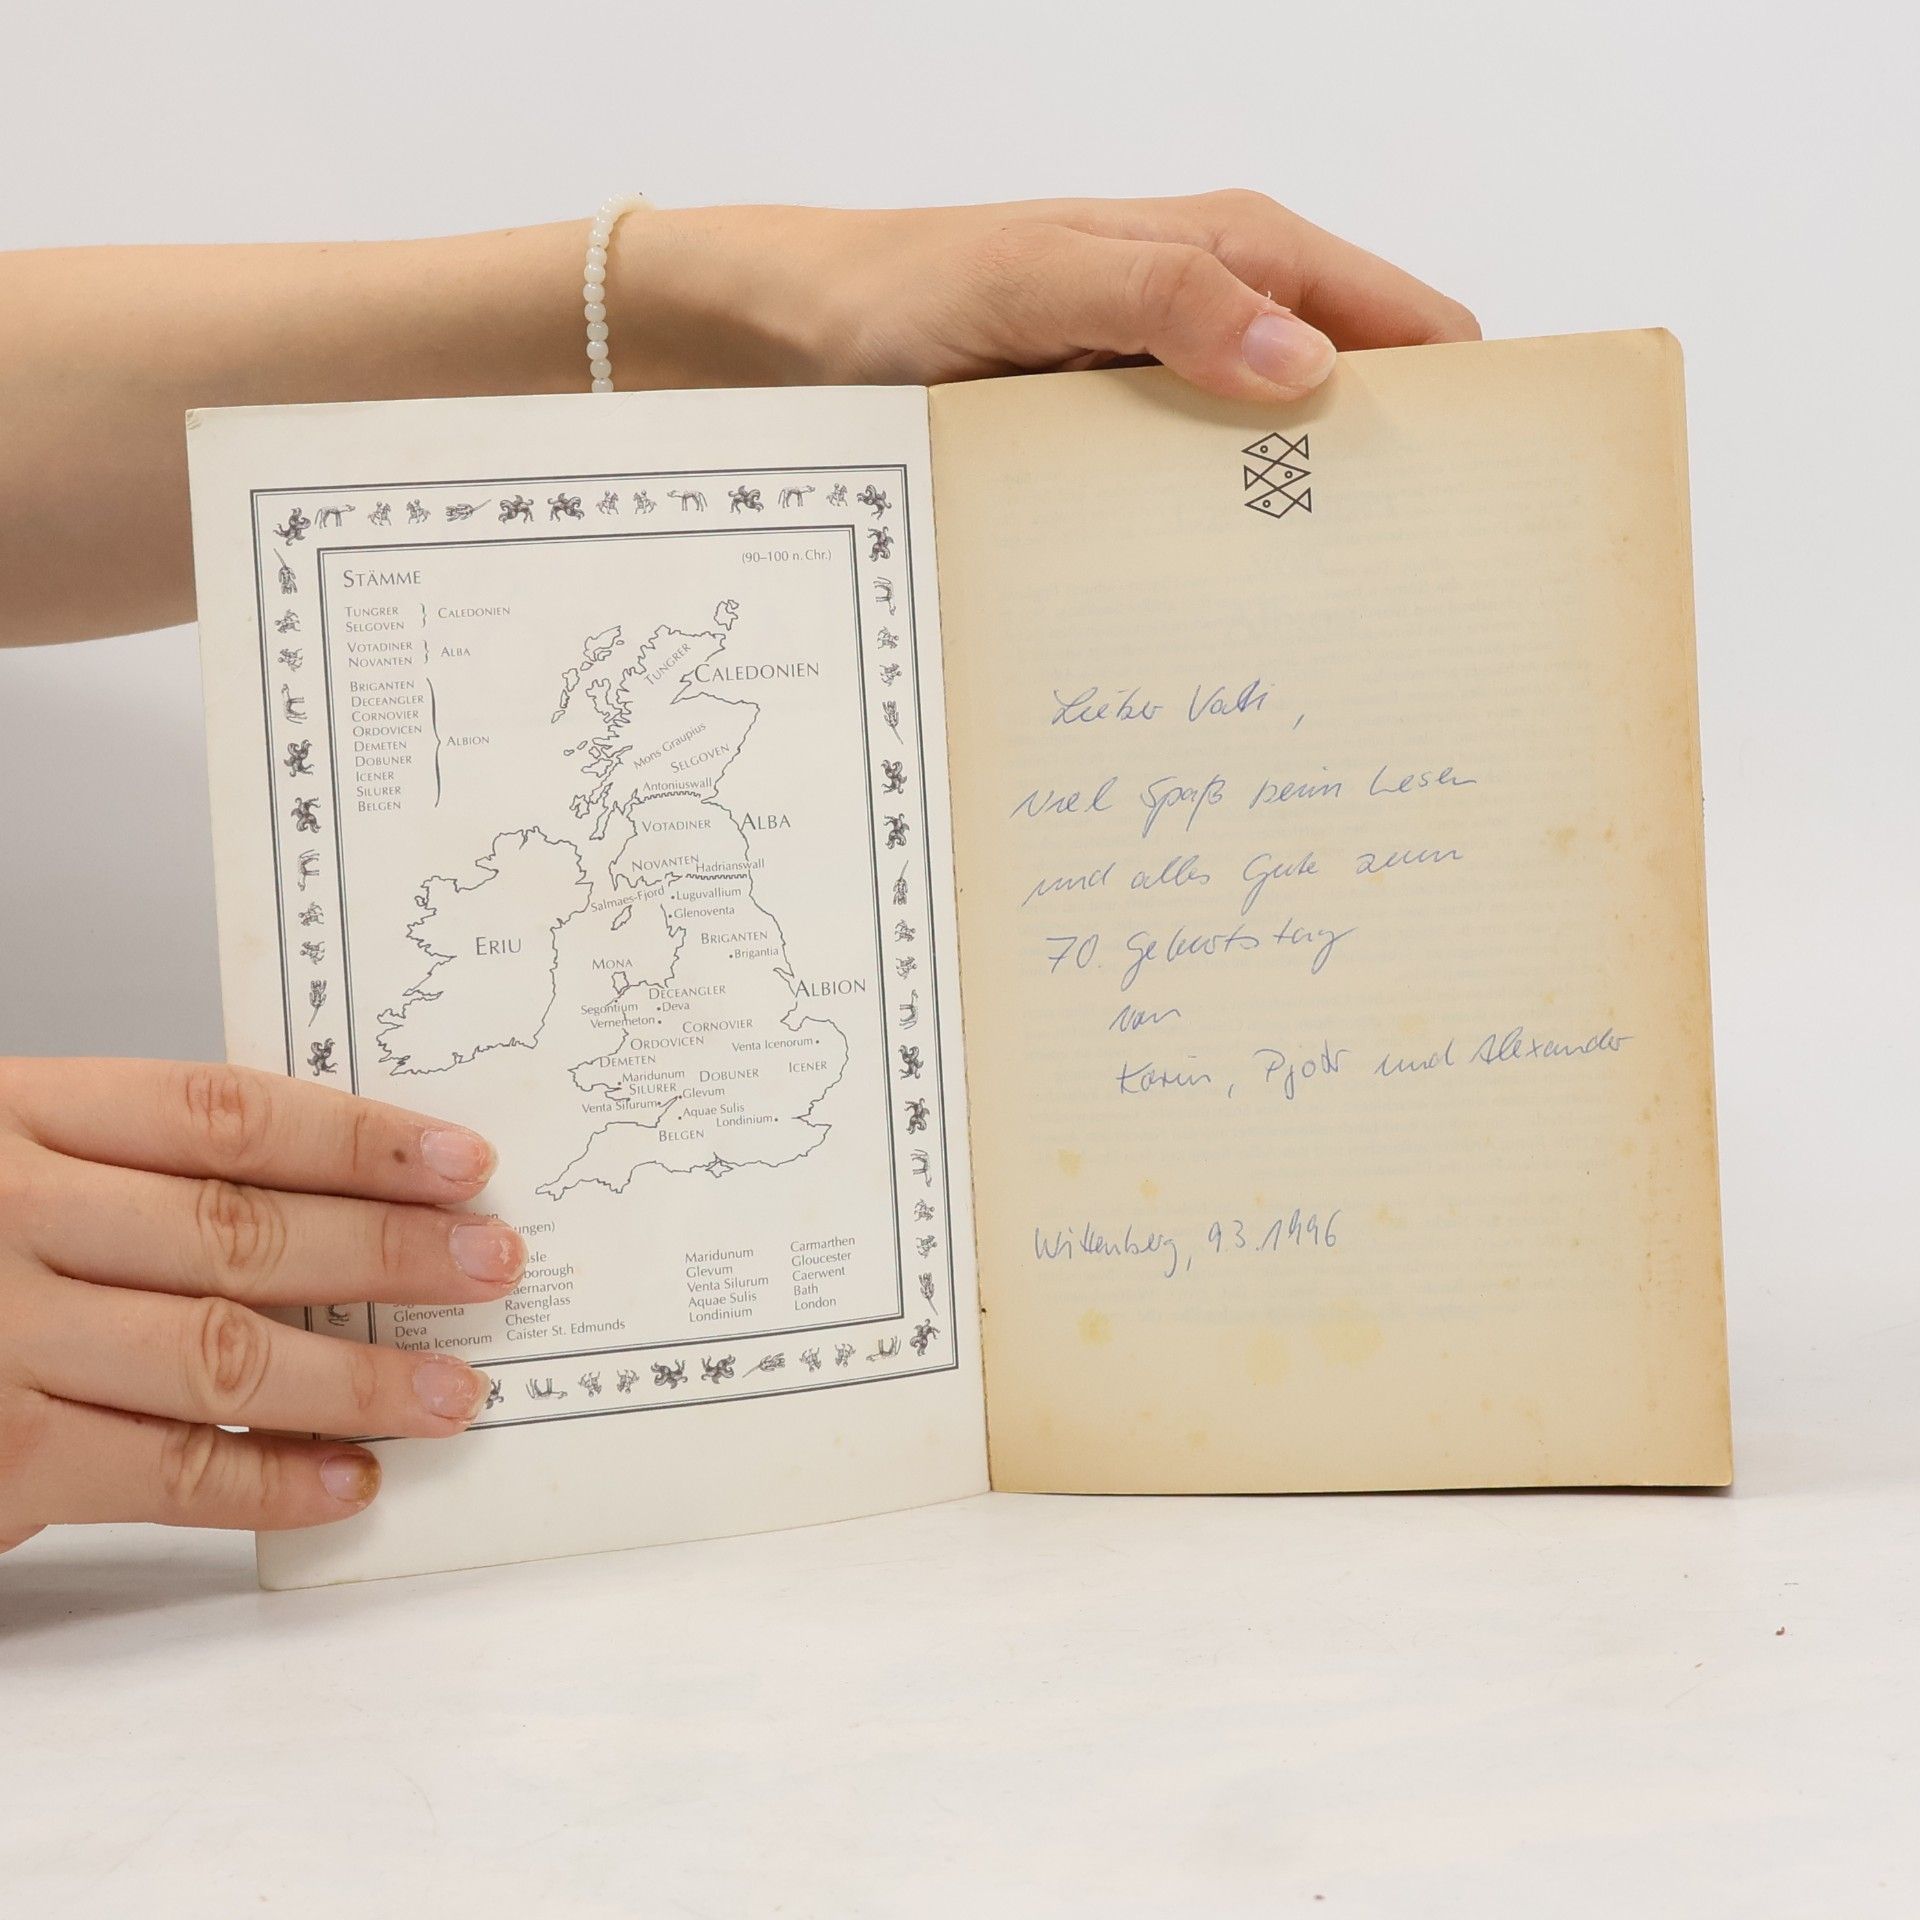 (90–100 n. Chr.)
STÄMME
TUNGRER
SELGOVEN
CALEDONIEN
VOTADINER
NOVANTEN
ALBA
BRIGANTEN
DECEANGLER
CORNOVIER
ORDOVICEN
DEMETEN
DOBUNER
ICENER
SILURER
BELGEN
ALBION
TUNGRER
CALEDONIEN
Mons Graupius
SELGOVEN
Antoniuswall
VOTADINER
ALBA
NOVANTEN
Hadrianswall
Salmaes-Fjord
Luguvallium
Glenoventa
ERIU
BRIGANTEN
Brigantia
MONA
ALBION
DECEANGLER
Segontium
Deva
Vernemeton
CORNOVIER
ORDOVICEN
Venta Icenorum
DEMETEN
ICENER
Maridunum
DOBUNER
SILURER
Glevum
Venta Silurum
Aquae Sulis
Londinium
BELGEN
Glenoventa Ravenglass
Deva Chester
Venta Icenorum Caister St. Edmunds
Maridunum Carmarthen
Glevum Gloucester
Venta Silurum Caerwent
Aquae Sulis Bath
Londinium London
Lieber Vati,
viel Spaß beim Lesen
und alles Gute zum
70. Geburtstag
von
Karin, Pjotr und Alexander
Wittenberg, 9.3.1996